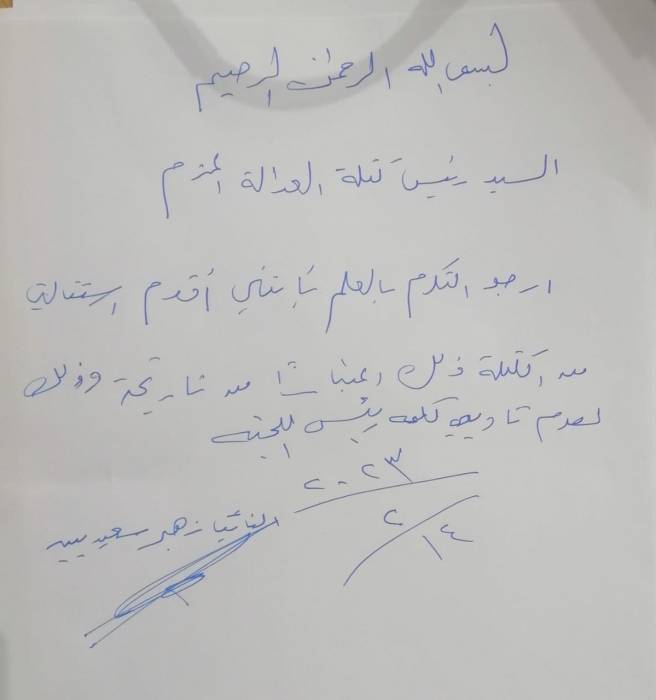 بسم الله الرحمن الرحيم
السيد رئيس كتلة العدالة المحترم
ارجو التكرم بالعلم بإنني أقدم استقالتي
من الكتلة وذلك اعتباراً من تاريخة وذلك
لعدم
٢٠٢٣
٢/١٤
النائب زهير سعيد